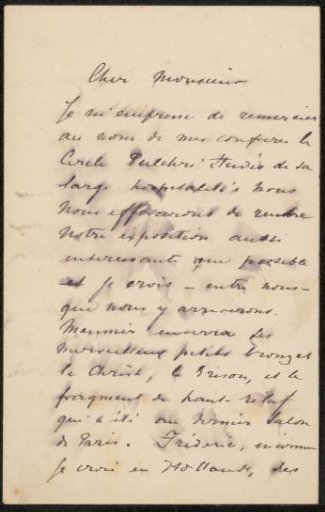 Cher Monsieur
Je m'empresse de remercier
au nom de mes confrères le
Cercle Pulchri Studio de sa
large hospitalité. Nous
nous efforcerons de rendre
notre exposition aussi
intéressante que possible
et je crois – entre nous –
que nous y arriverons.
Meunier enverra ses
merveilleux petits bronzes
le Christ, le Grison, et le
fragment de haut-relief
qui a été au dernier Salon
de Paris. Fréderic, inconnu
je crois en Hollande, des